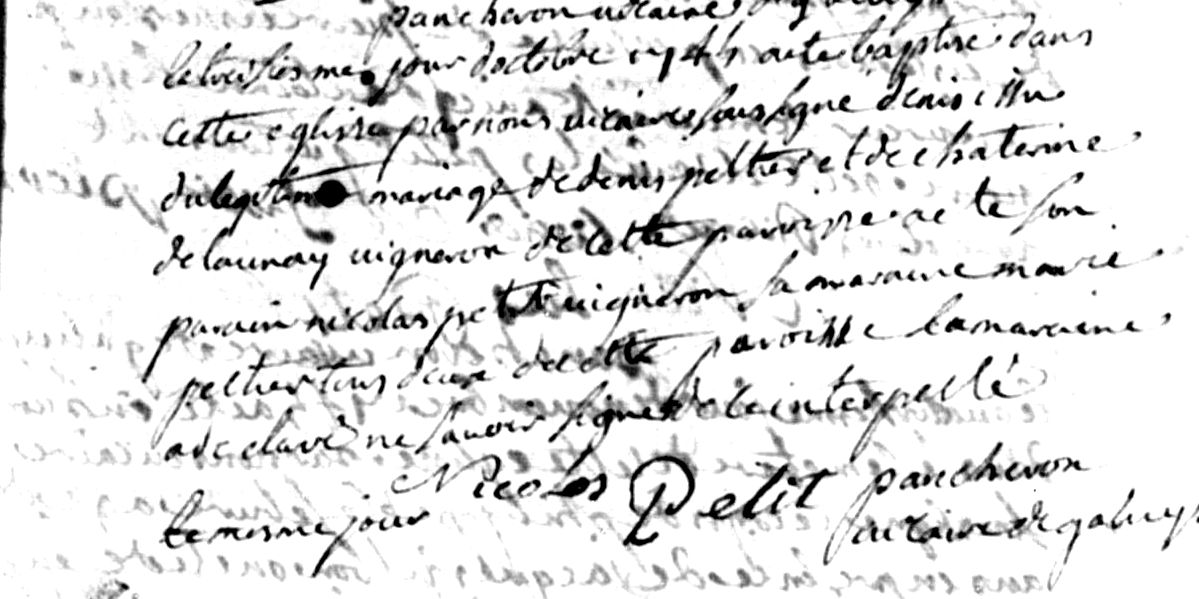 pancheron vicaire
le treisiesme jour doctobre 1745 aete baptise dans
cette eglisse par nous vicaire soussigne denis issu
du legitime mariage de denis peltier et de chaterine
delaunay vigneron de cette paroisse a ete son
parain nicolas petit vigneron sa maraine marie
peltier tous deux de cette paroisse la maraine
a declaré ne savoir signer de ce interpellé
le mesme jour Nicolas Petit pancheron
vicaire de